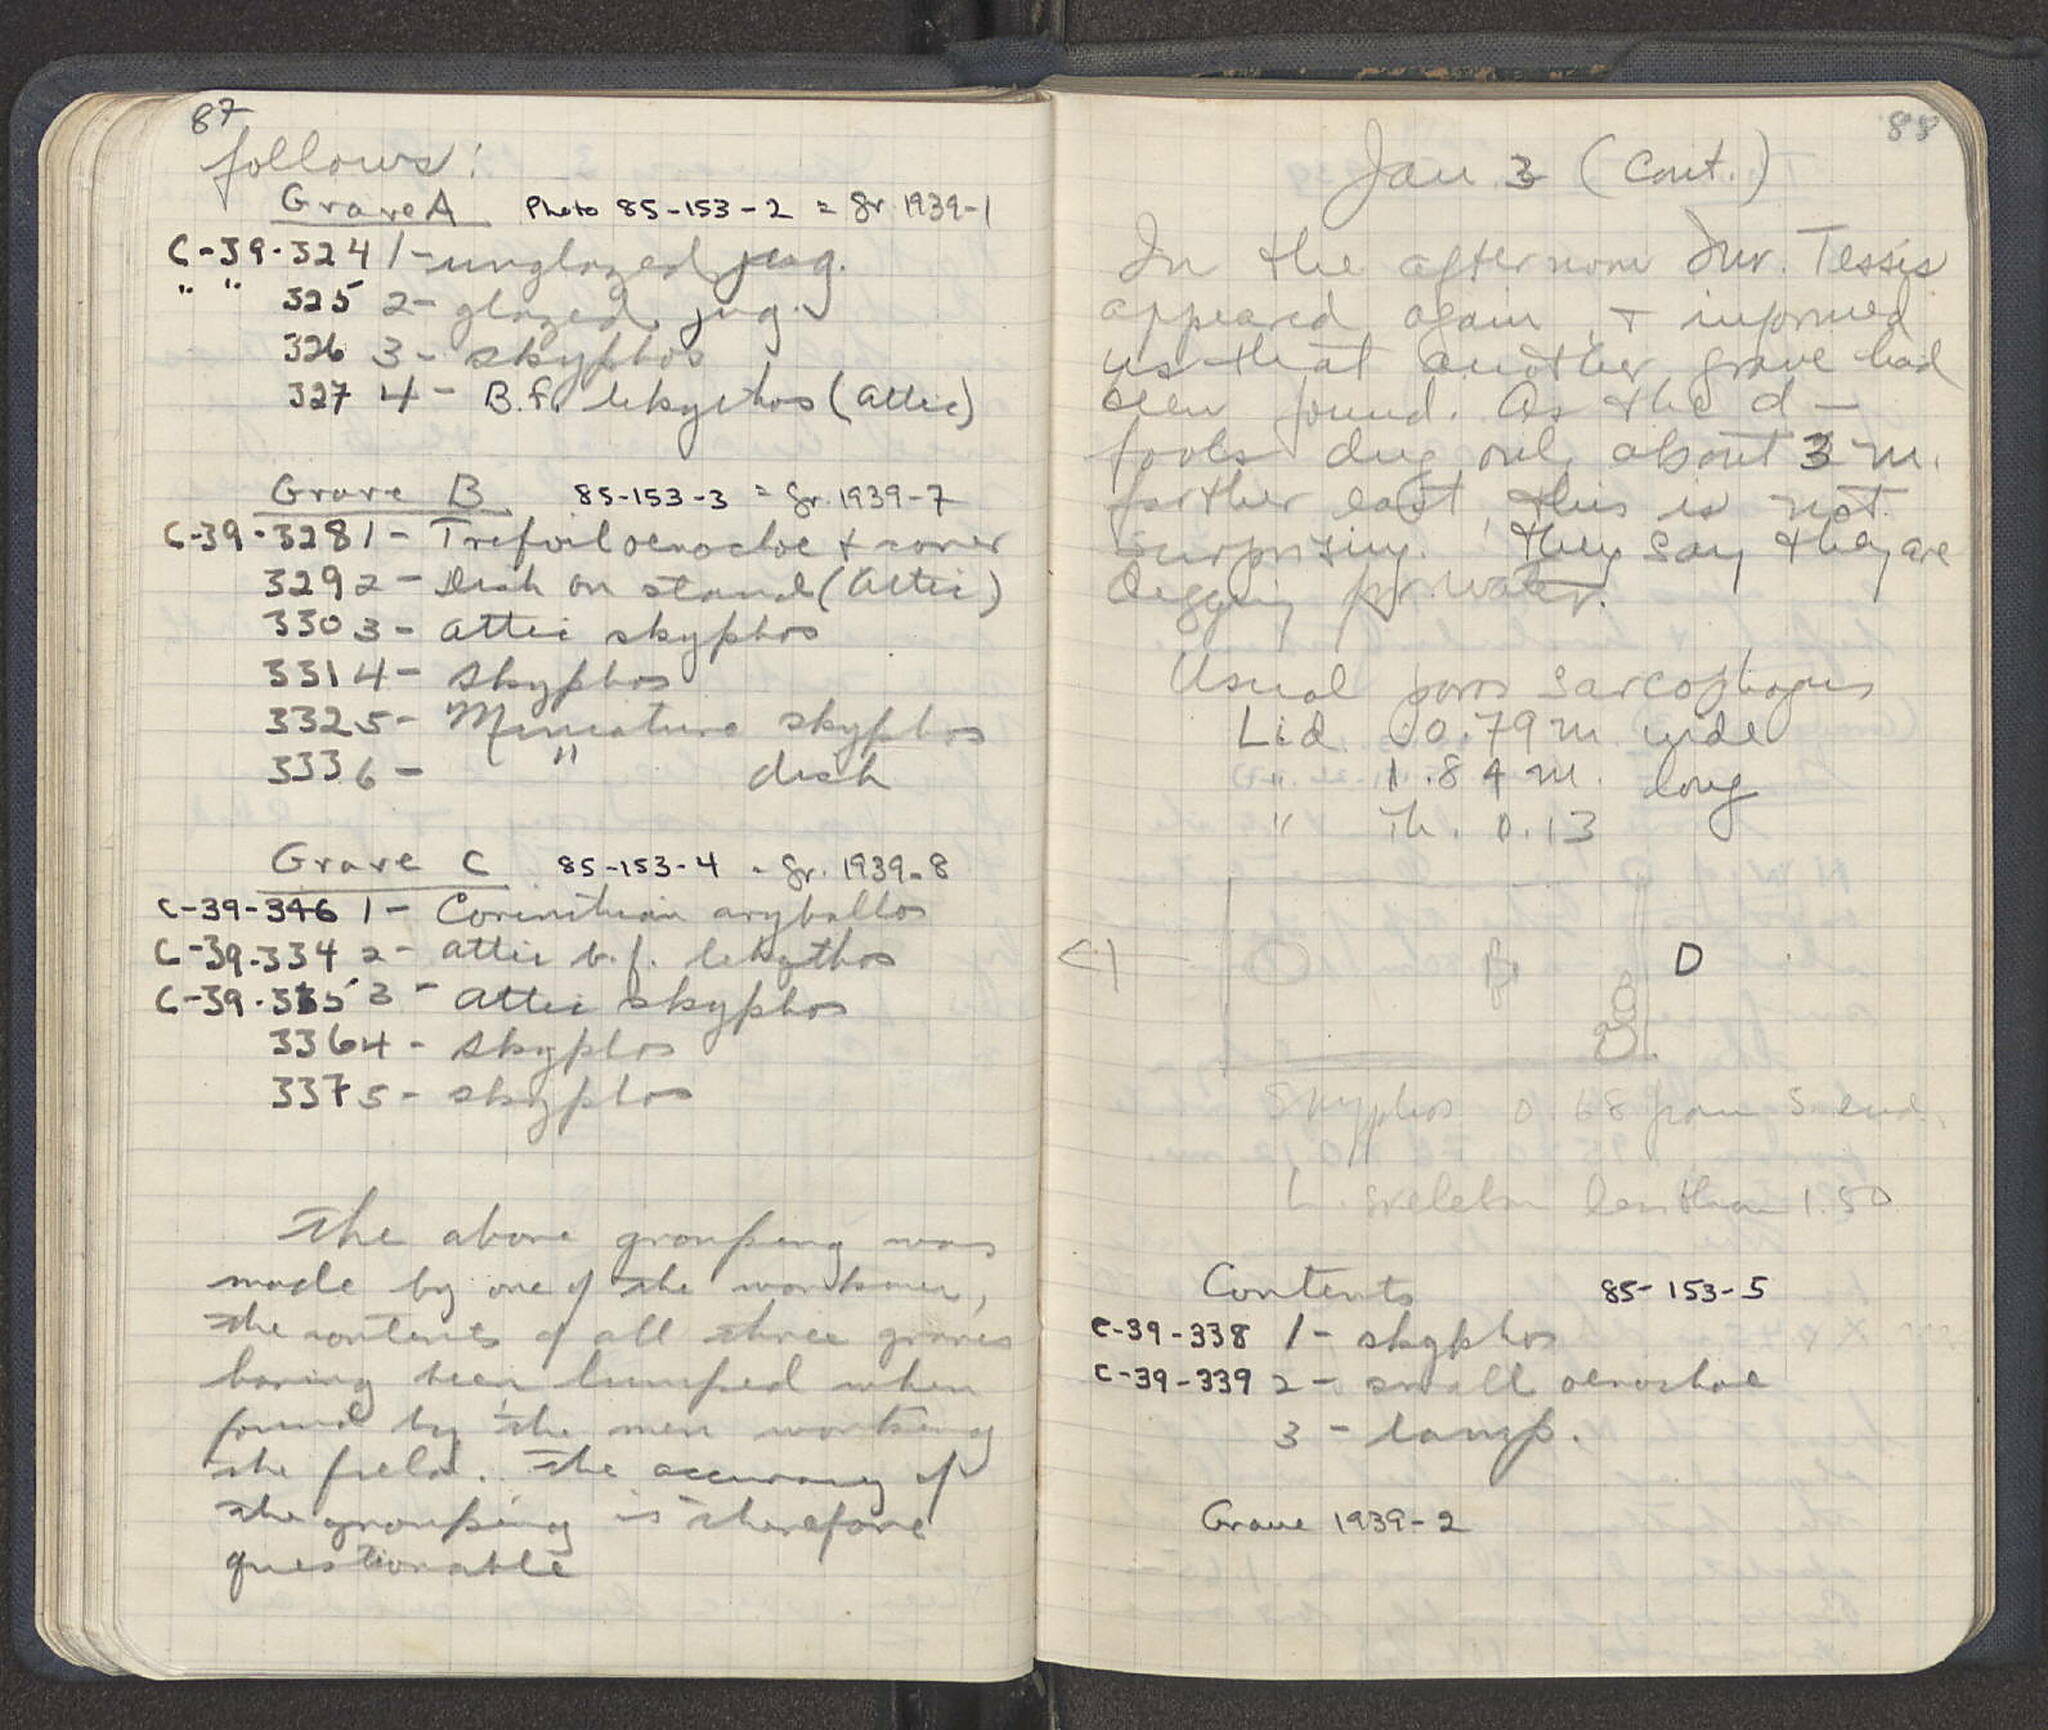 87
follows:
Grave A Photo 85-153-2 = Gr. 1939-1
C-39-324 1- unglazed jug.
" " 325 2- glazed jug.
326 3- skyphos
327 4- B.f. lekythos (Attic)
Grave B 85-153-3 = Gr. 1939-7
C-39-328 1- Trefoil oenochoe + cover
329 2- Dish on stand (Attic)
330 3- Attic skyphos
331 4- Skyphos
332 5- Miniature skyphos
333 6- " dish
Grave C 85-153-4 = Gr. 1939-8
C-39-346 1- Corinthian aryballos
C-39-334 2- Attic b.f. lekythos
C-39-335 3- Attic skyphos
336 4- Skyphos
337 5- skyphos
The above grouping was
made by one of the workmen,
the contents of all three graves
having been lumped when
found by the men working
the field. The accuracy of
the grouping is therefore
questionable
88
Jan 3 (Cont.)
In the afternoon Mr. Tessis
appeared again + informed
us that another grave had
been found. As the d—
fools dug only about 3 m.
farther east, this is not
surprising. They say they are
digging for water.
Usual poros sarcophagus
Lid 0.79 m wide
" 1.84 m. long
" Th. 0.13
D
Skyphos 0.68 from S end.
L. skeleton less than 1.50
Contents 85-153-5
C-39-338 1- skyphos
C-39-339 2- small oenochoe
3- lamp.
Grave 1939-2